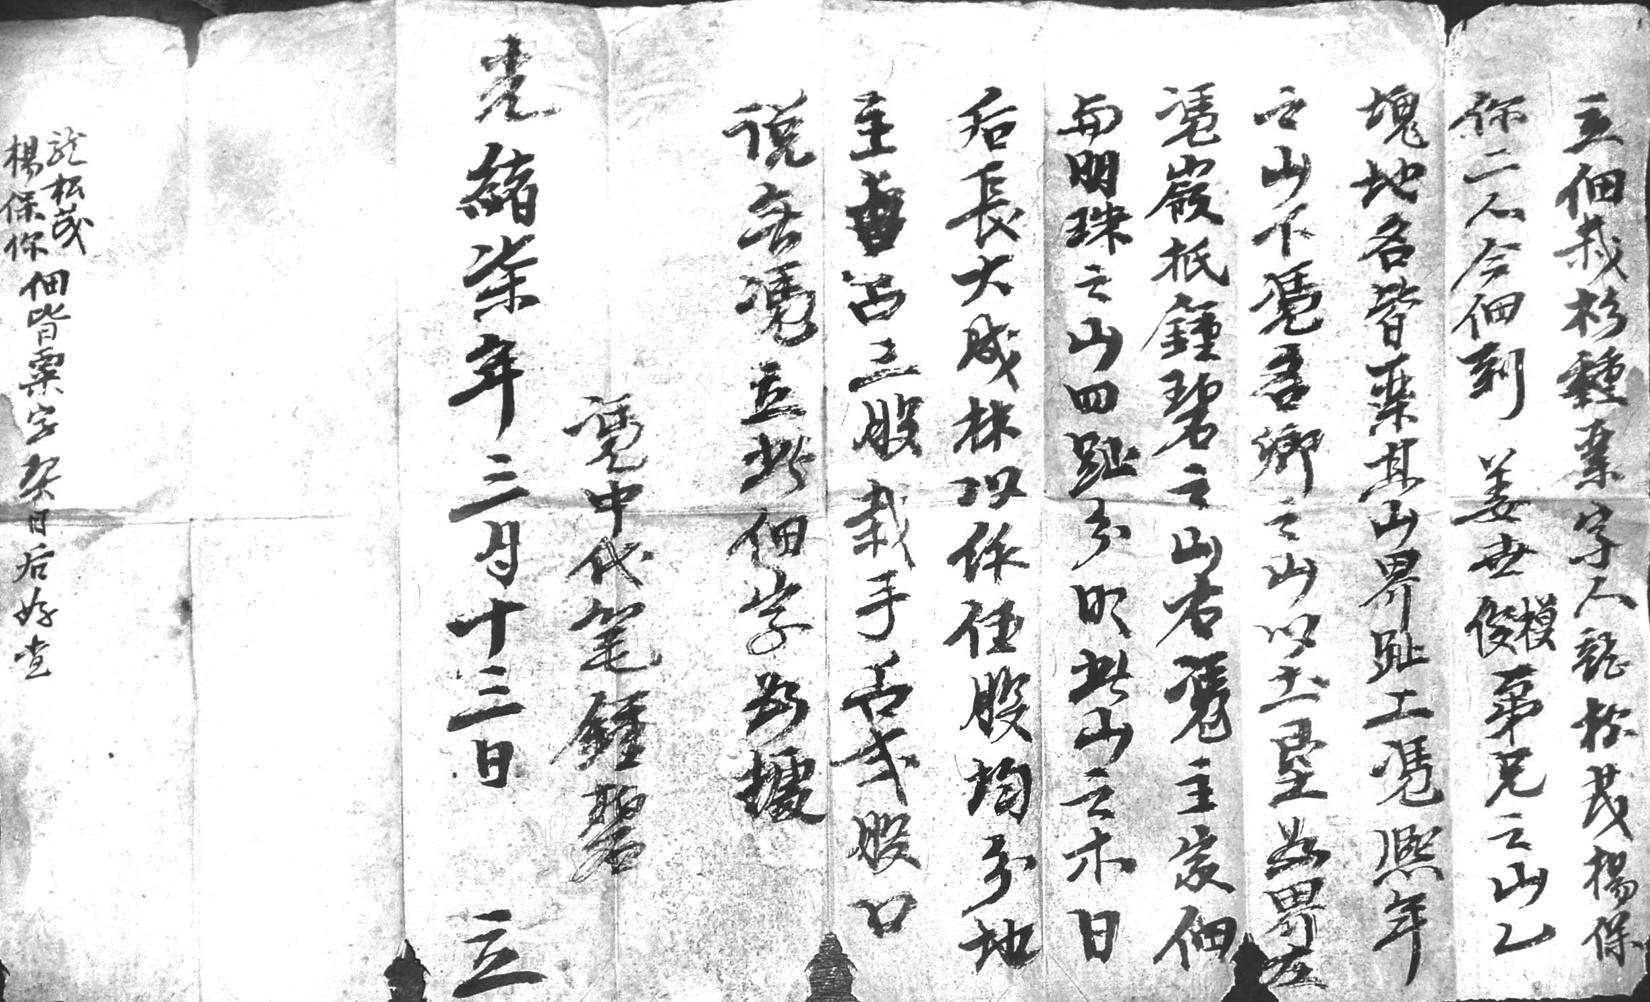 立佃栽杉種粟字人龍松茂楊保
你二人今佃到姜世俊模弟兄之山乙
塊地名皆粟其山界趾工憑熙年
之山下憑吾鄉之山以土墾為界左
憑嚴抵鍾碧之山右憑主家佃
與明珠之山四趾分明此山之木日
后長大成林以作伍股均分地
主占三股栽手占弍股口
說無憑立此佃字為據
憑中代笔鍾碧
光緒柒年三月十三日 立
龍松茂
楊保你佃皆粟字契日后好查